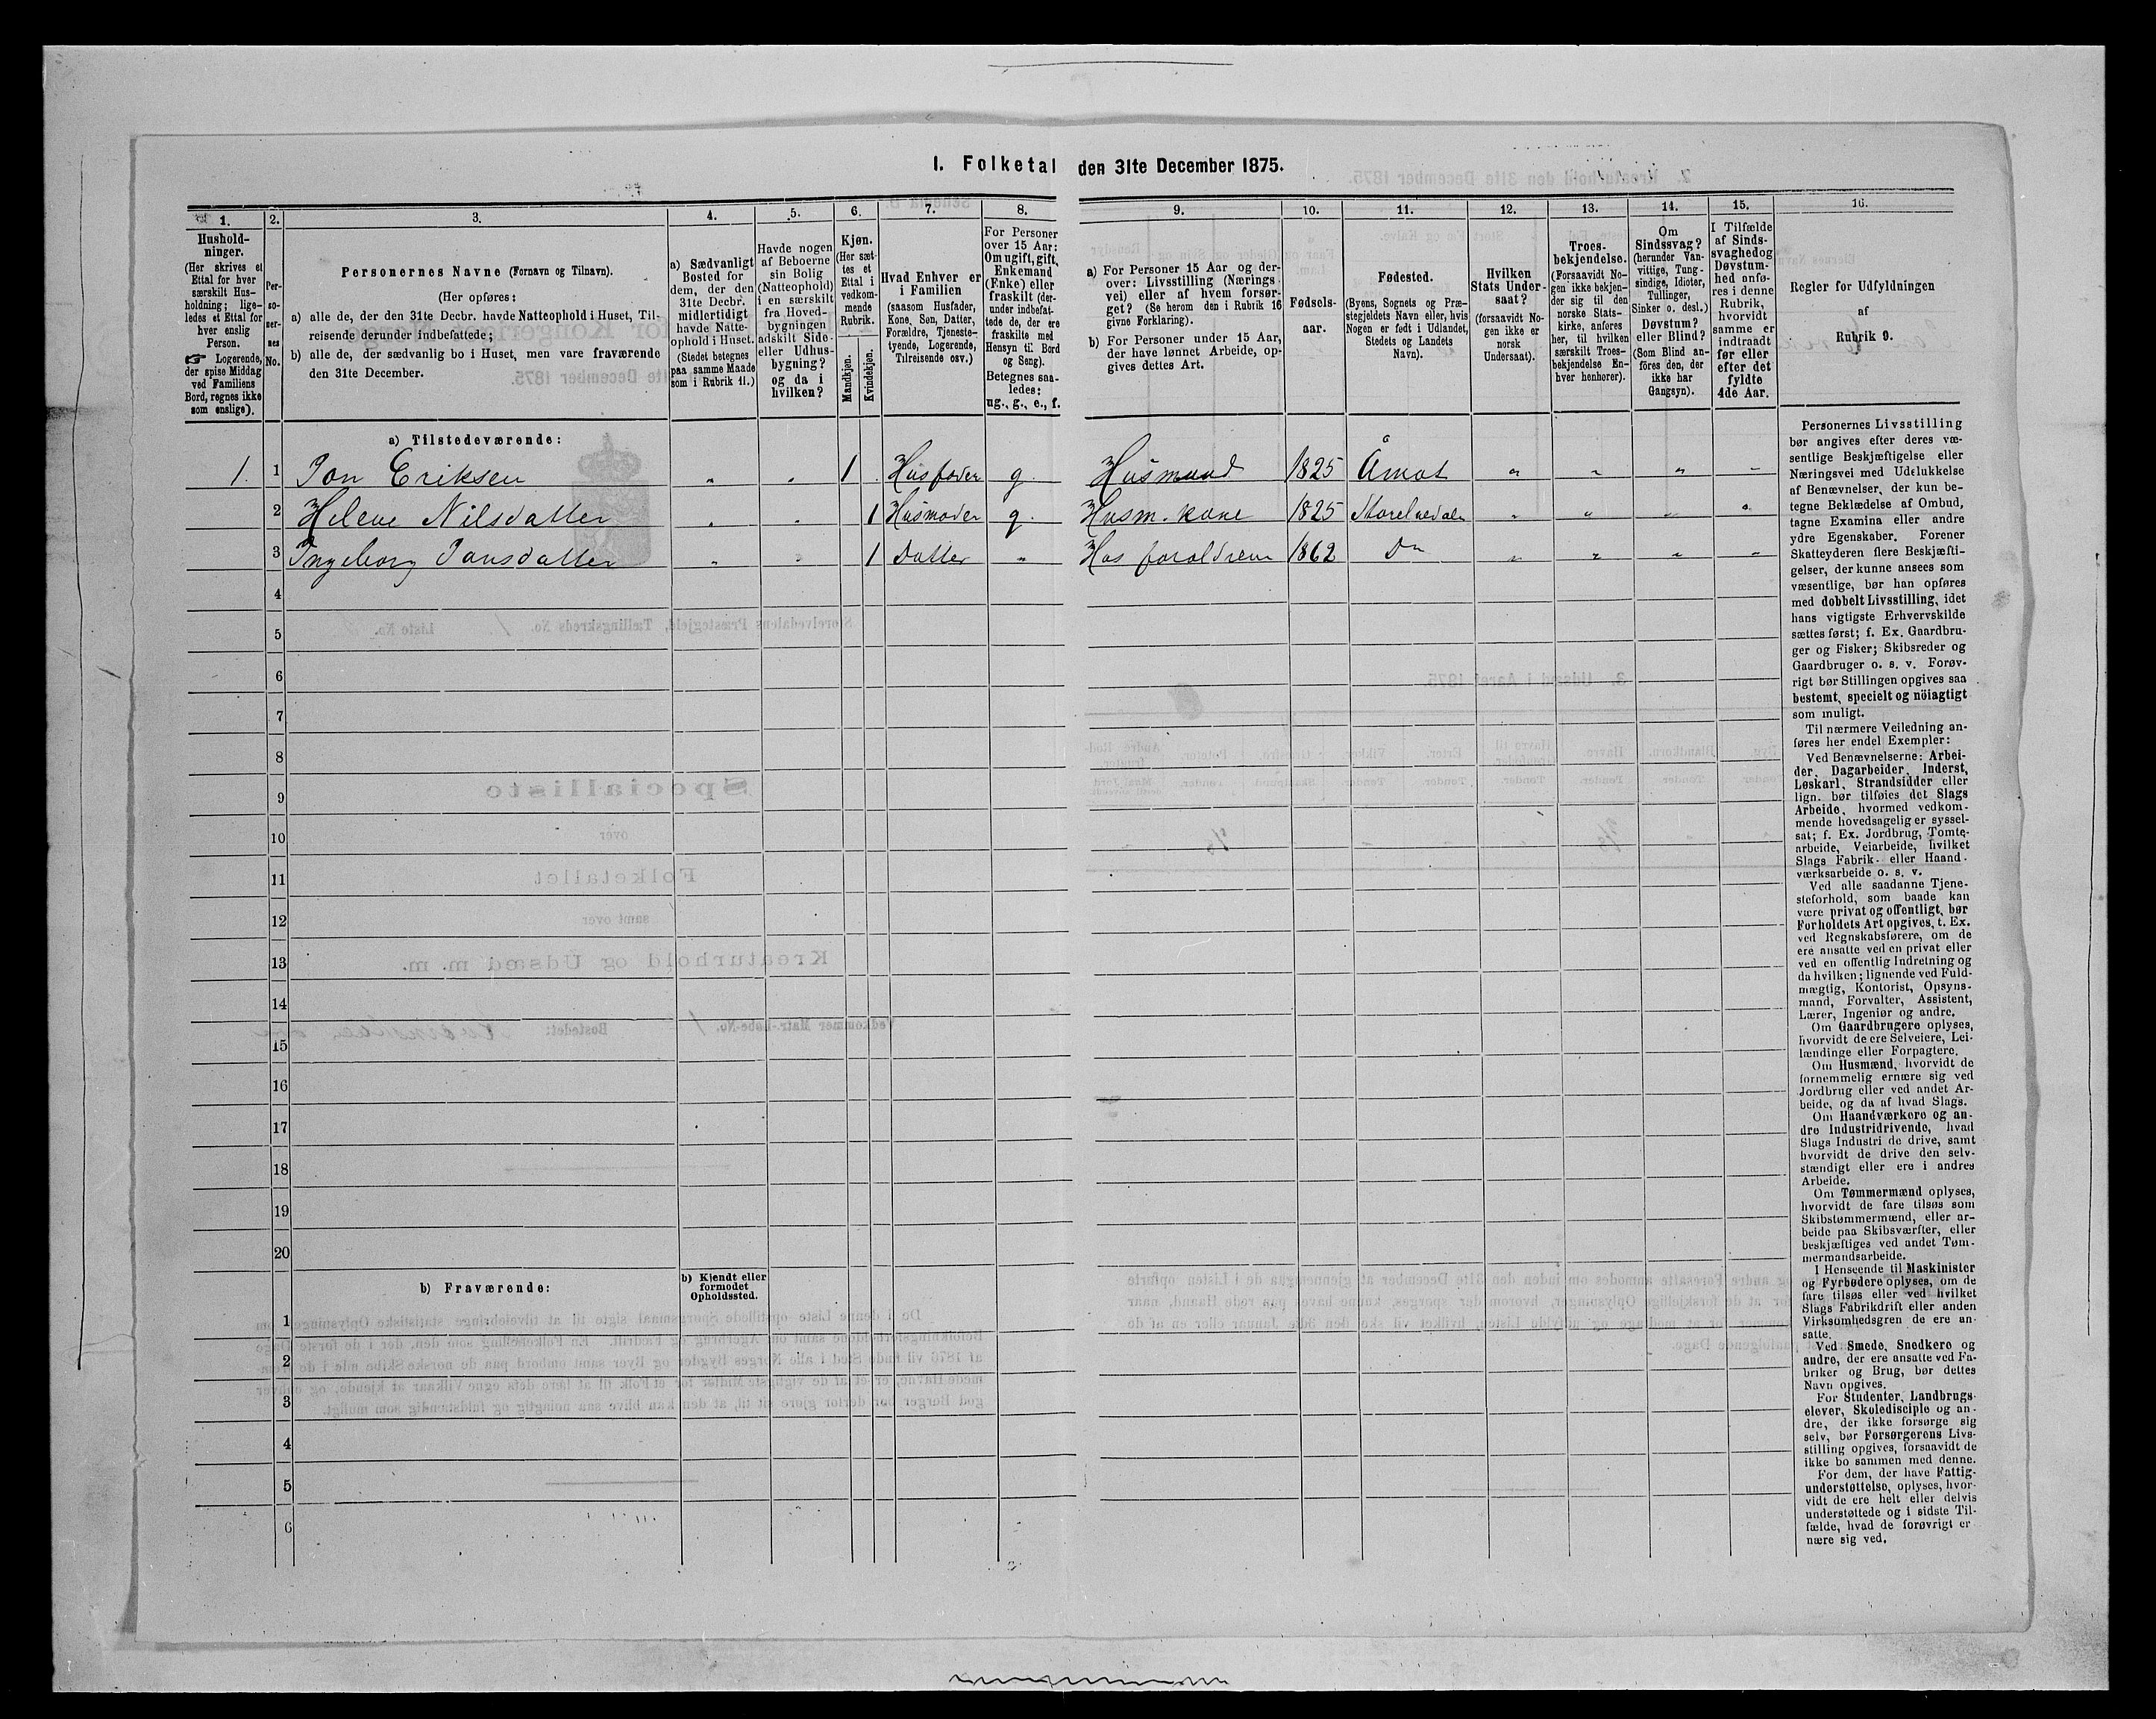 I. Folketal den 31te December 1875.
1.
Hushold-
ninger.
(Her skrives et
Ettal for hver
særskilt Hus-
holdning; lige-
ledes et Ettal for
hver enslig
Person.
☞ Logerende,
der spise Middag
ved Familiens
Bord, regnes ikke
som enslige).
2.
Per-
so-
ner-
nes
No.
3.
Personernes Navne (Fornavn og Tilnavn).
(Her opføres:
a) alle de, der den 31te Decbr. havde Natteophold i Huset, Til-
reisende derunder indbefattede;
b) alle de, der sædvanlig bo i Huset, men vare fraværende
den 31te December.
4.
a) Sædvanligt
Bosted for
dem, der den
31te Decbr.
midlertidigt
havde Natte-
ophold i Huset.
(Stedet betegnes
paa samme Maade
som i Rubrik 11.)
5.
Havde nogen
af Beboerne
sin Bolig
(Natteophold)
i en særskilt
fra Hoved-
bygningen
adskilt Side-
eller Udhus-
bygning?
og da i
hvilken?
6.
Kjøn.
(Her sæt-
tes et
Ettal i
vedkom-
mende
Rubrik.
Mandkjøn.
Kvindekjøn.
7.
Hvad Enhver er
i Familien
(saasom Husfader,
Kone, Søn, Datter,
Forældre, Tjeneste-
tyende, Logerende,
Tilreisende osv.)
8.
For Personer
over 15 Aar:
Om ugift, gift,
Enkemand
(Enke) eller
fraskilt (der-
under indbefat-
tede de, der ere
fraskilte med
Hensyn til Bord
og Seng).
Betegnes saa-
ledes:
ug., g., e., f.
9.
a) For Personer 15 Aar og der-
over: Livsstilling (Nærings-
vei) eller af hvem forsør-
get? (Se herom den i Rubrik 16
givne Forklaring).
b) For Personer under 15 Aar,
der have lønnet Arbeide, op-
gives dettes Art.
10.
Fødsels-
aar.
11.
Fødested.
(Byens, Sognets og Præ-
stegjeldets Navn eller, hvis
Nogen er født i Udlandet,
Stedets og Landets
Navn).
12.
Hvilken
Stats Under-
saat?
(forsaavidt No-
gen ikke er
norsk
Undersaat).
13.
Troes-
bekjendelse.
(Forsaavidt No-
gen ikke bekjen-
der sig til den
norske Stats-
kirke, anføres
her, til hvilken
særskilt Troes-
bekjendelse En-
hver henhører).
14.
Om
Sindssvag?
(herunder Van-
vittige, Tung-
sindige, Idioter,
Tullinger,
Sinker o. desl.)
Døvstum?
eller Blind?
(Som Blind an-
føres den, der
ikke har
Gangsyn).
15.
I Tilfælde
af Sinds-
svaghed og
Døvstum-
hed anfø-
res i denne
Rubrik,
hvorvidt
samme er
indtraadt
før eller
efter det
fyldte
4de Aar.
16.
Regler for Udfyldningen
af
Rubrik 9.
a) Tilstedeværende:
1. 1 Jon Eriksen " " 1 Husfader g. Husmand 1825 Åmot " " " "
2 Helene Nilsdatter " " 1 Husmoder g. Husm. kone 1825 Storelvedalen " " " "
3 Ingeborg Jonsdatter " " 1 Datter " Hos foraldrene 1862 Do " " " "
4
5
6
7
8
9
10
11
12
13
14
15
16
17
18
19
20
b) Fraværende:
b) Kjendt eller
formodet
Opholdssted.
1
2
3
4
5
6
Personernes Livsstilling
bør angives efter deres væ-
sentlige Beskjæftigelse eller
Næringsvei med Udelukkelse
af Benævnelser, der kun be-
tegne Beklædelse af Ombud,
tagne Examina eller andre
ydre Egenskaber. Forener
Skatteyderen flere Beskjæfti-
gelser, der kunne ansees som
væsentlige, bør han opføres
med dobbelt Livsstilling, idet
hans vigtigste Erhvervskilde
sættes først; f. Ex. Gaardbru-
ger og Fisker; Skibsreder og
Gaardbruger o. s. v. Forøv-
rigt bør Stillingen opgives saa
bestemt, specielt og nöiagtigt
som muligt.
Til nærmere Veiledning an-
føres her endel Exempler:
Ved Benævnelserne: Arbei-
der, Dagarbeider, Inderst,
Løskarl, Strandsidder eller
lign. bør tilføies det Slags
Arbeide, hvormed vedkom-
mende hovedsagelig er syssel-
sat; f. Ex. Jordbrug, Tomte-
arbeide, Veiarbeide, hvilket
Slags Fabrik- eller Haand-
værksarbeide o. s. v.
Ved alle saadanne Tjene-
steforhold, som baade kan
være privat og offentligt, bør
Forholdets Art opgives, t. Ex.
ved Regnskabsførere, om de
ere ansatte ved en privat eller
ved en offentlig Indretning og
da hvilken; lignende ved Fuld-
mægtig, Kontorist, Opsyns-
mand, Forvalter, Assistent,
Lærer, Ingeniør og andre.
Om Gaardbrugere oplyses,
hvorvidt de ere Selveiere, Lei-
lændinge eller Forpagtere.
Om Husmænd, hvorvidt de
fornemmelig ernære sig ved
Jordbrug eller ved andet Ar-
beide, og da af hvad Slags.
Om Haandværkere og an-
dre Industridrivende, hvad
Slags Industri de drive, samt
hvorvidt de drive den selv-
stændigt eller ere i andres
Arbeide.
Om Tømmermænd oplyses,
hvorvidt de fare tilsøs som
Skibstømmermænd, eller ar-
beide paa Skibsværfter, eller
beskjæftiges ved andet Tøm-
mermandsarbeide.
I Henseende til Maskinister
og Fyrbødere oplyses, om de
fare tilsøs eller ved hvilket
Slags Fabrikdrift eller anden
Virksomhedsgren de ere an-
satte.
Ved Smede, Snedkere og
andre, der ere ansatte ved Fa-
briker og Brug, bør dettes
Navn opgives.
For Studenter, Landbrugs-
elever, Skoledisciple og an-
dre, der ikke forsørge sig
selv, bør Forsørgerens Livs-
stilling opgives, forsaavidt de
ikke bo sammen med denne.
For dem, der have Fattig-
understøttelse, oplyses, hvor-
vidt de ere helt eller delvis
understøttede og i sidste Til-
fælde, hvad de forøvrigt er-
nære sig ved.